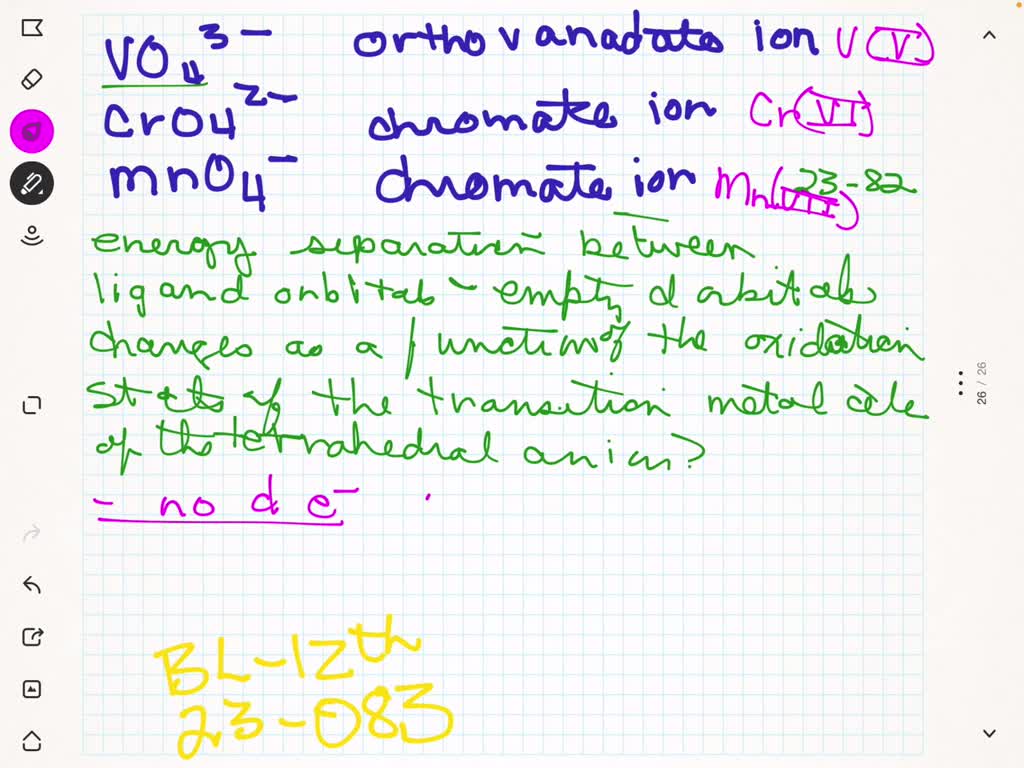 VO4 3- orthovanadate ion V(V)
CrO4 2- chromate ion Cr(VI)
MnO4 - chromate ion Mn(VII) 23-82
energy separation between
ligand orbitals - empty d orbitals
changes as a function of the oxidation
state of the transition metal
of the tetrahedral anion?
- no d e-
BL-12th
23-083
26 / 26